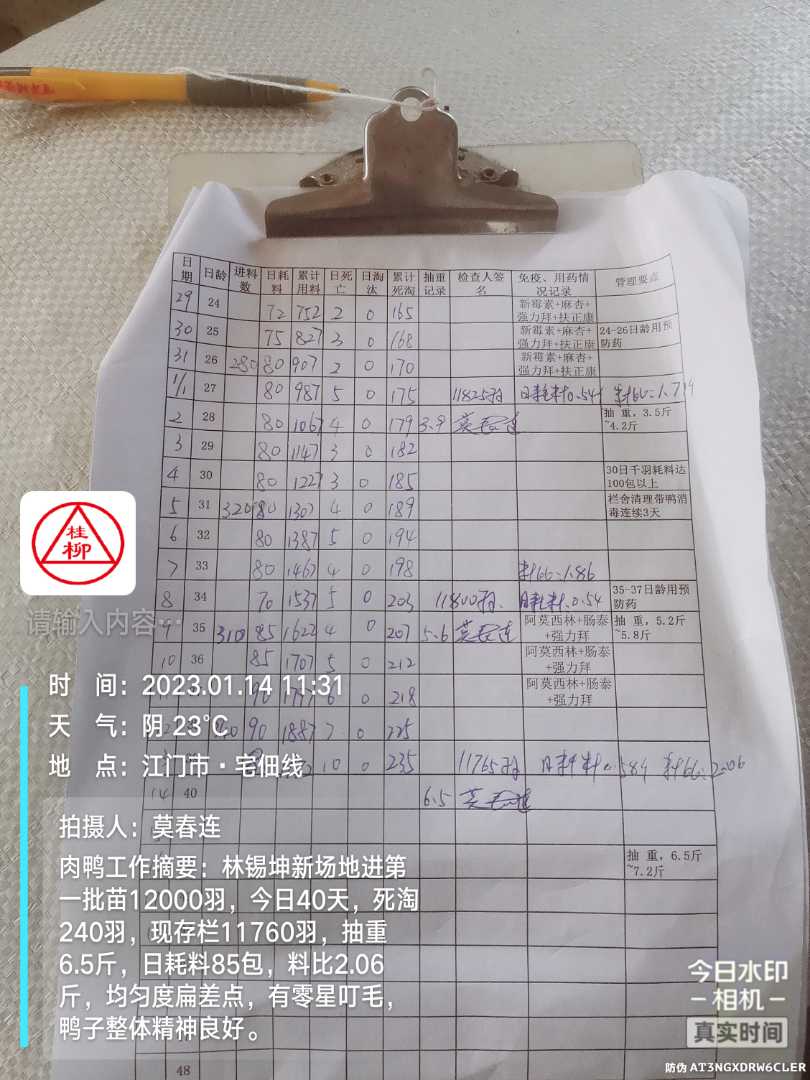 日期 日龄 进料数 日耗料 累计用料 日死亡 日淘汰 累计死淘 抽重记录 检查人签名 免疫、用药情况记录 管理要点
29 24 72 752 2 0 165 新霉素+麻杏+强力拜+扶正康
30 25 75 827 3 0 168 新霉素+麻杏+强力拜+扶正康 24-26日龄用预防药
31 26 280 80 907 2 0 170 新霉素+麻杏+强力拜+扶正康
1/1 27 80 987 5 0 175 11825羽 日耗料0.54 料比:1.714
2 28 80 1067 4 0 179 3.9 莫春连 抽 重,3.5斤~4.2斤
3 29 80 1147 3 0 182
4 30 80 1227 3 0 185 30日千羽耗料达100包以上
5 31 320 80 1307 4 0 189 栏舍清理带鸭消毒连续3天
6 32 80 1387 5 0 194
7 33 80 1467 4 0 198 料比:1.86
8 34 70 1537 5 0 203 11800羽 日耗料:0.54 35-37日龄用预防药
9 35 310 85 1622 4 0 207 5.6 莫春连 阿莫西林+肠泰+强力拜 抽 重,5.2斤~5.8斤
10 36 85 1707 5 0 212 阿莫西林+肠泰+强力拜
90 6 0 218 阿莫西林+肠泰+强力拜
90 1887 7 0 225
10 0 235 11765羽 日耗料0.584 料比:2.06
14 40 6.5 莫春连
抽 重,6.5斤~7.2斤
48
桂
柳
请输入内容…
时 间:2023.01.14 11:31
天 气:阴 23℃
地 点:江门市·宅佃线
拍摄人:莫春连
肉鸭工作摘要:林锡坤新场地进第
一批苗12000羽,今日40天,死淘
240羽,现存栏11760羽,抽重
6.5斤,日耗料85包,料比2.06
斤,均匀度扁差点,有零星叮毛,
鸭子整体精神良好。
今日水印
-相机-
真实时间
防伪 AT3NGXDRW6CLER